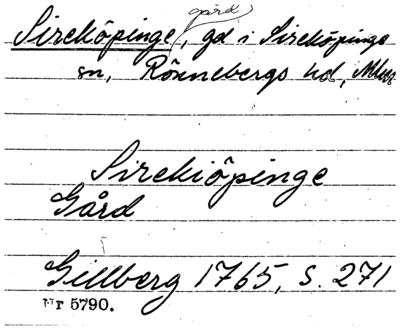 gård
Sireköpinge, gd i Sireköpinge
sn, Rönnebergs hd, Mlhs
Sirekiöpinge
Gård
Gillberg 1765, S. 271
Nr 5790.